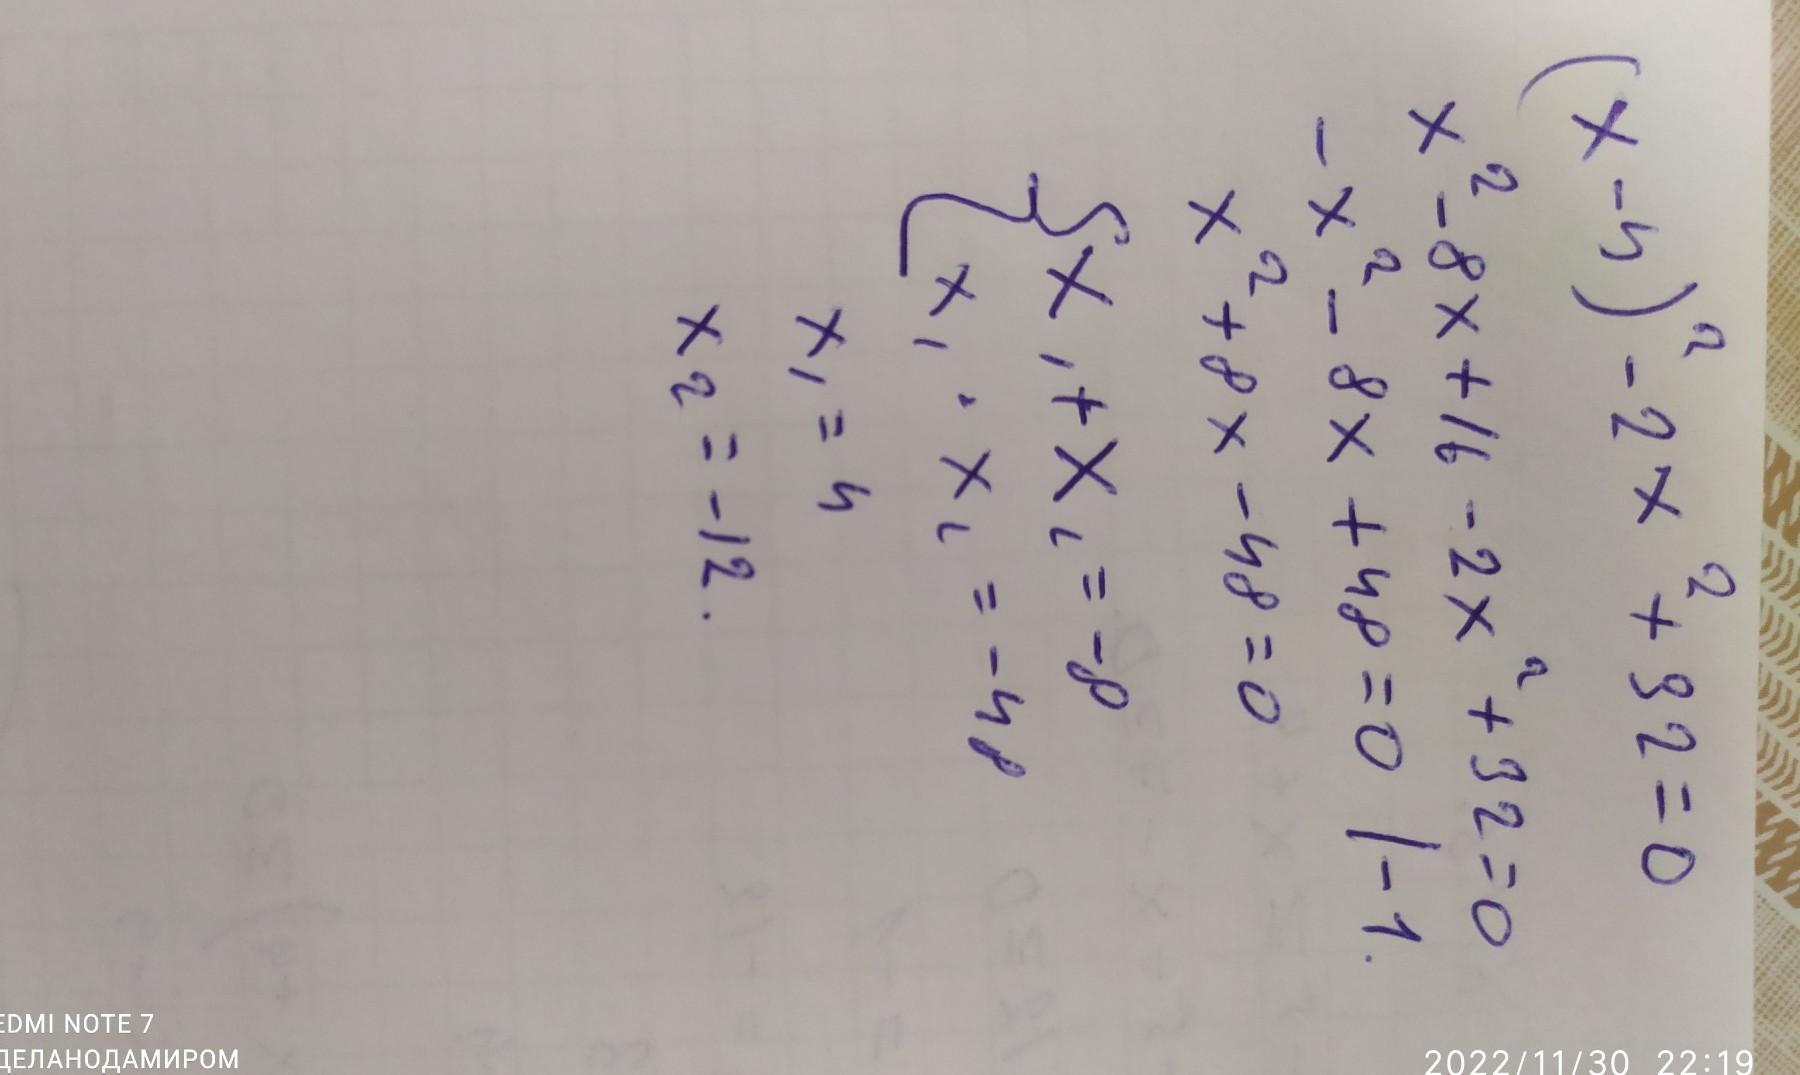 (x-4)²-2x²+32=0
x²-8x+16-2x²+32=0
-x²-8x+48=0 |-1.
x²+8x-48=0
{x₁+x₂=-8
x₁·x₂=-48
x₁=4
x₂=-12.
EDMI NOTE 7
ДЕЛАНОДАМИРОМ
2022/11/30 22:19